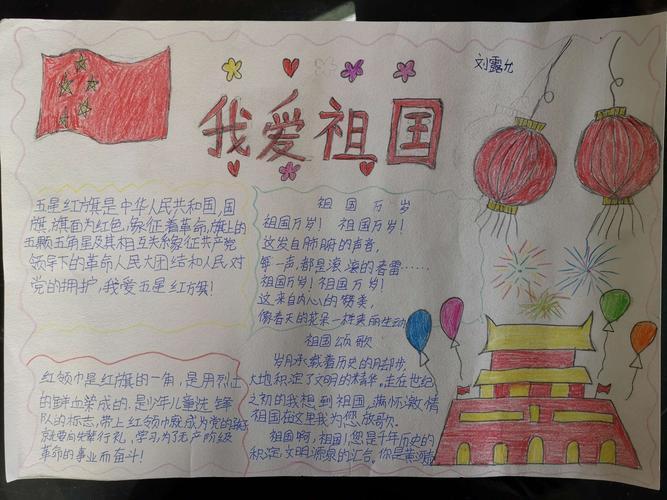 刘露允
我爱祖国
五星红旗是中华人民共和国,国
旗,旗面为红色,象征着革命,旗上的
五颗五角星及其相互关系象征共产党
领导下的革命人民大团结和人民对
党的拥护,我爱五星红旗!
祖国万岁
祖国万岁!祖国万岁!
这发自肺腑的声音,
每一声,都是滚滚的春雷……
祖国万岁!祖国万岁!
这来自内心的赞美,
像春天的花朵一样美丽生动
祖国颂歌
岁月承载着历史的脚步,
大地积淀了文明的精华。走在世纪
之初的我想到祖国,满怀激情
祖国在这里我为您放歌。
祖国啊,祖国!您是千年历史的
积淀,文明源泉的汇合。你是黄河
红领巾是红旗的一角,是用烈士
的鲜血染成的,是少年儿童选锋
队的标志,带上红领巾就成为党的
就要向先辈行礼,学习为了无产阶级
革命的事业而奋斗!